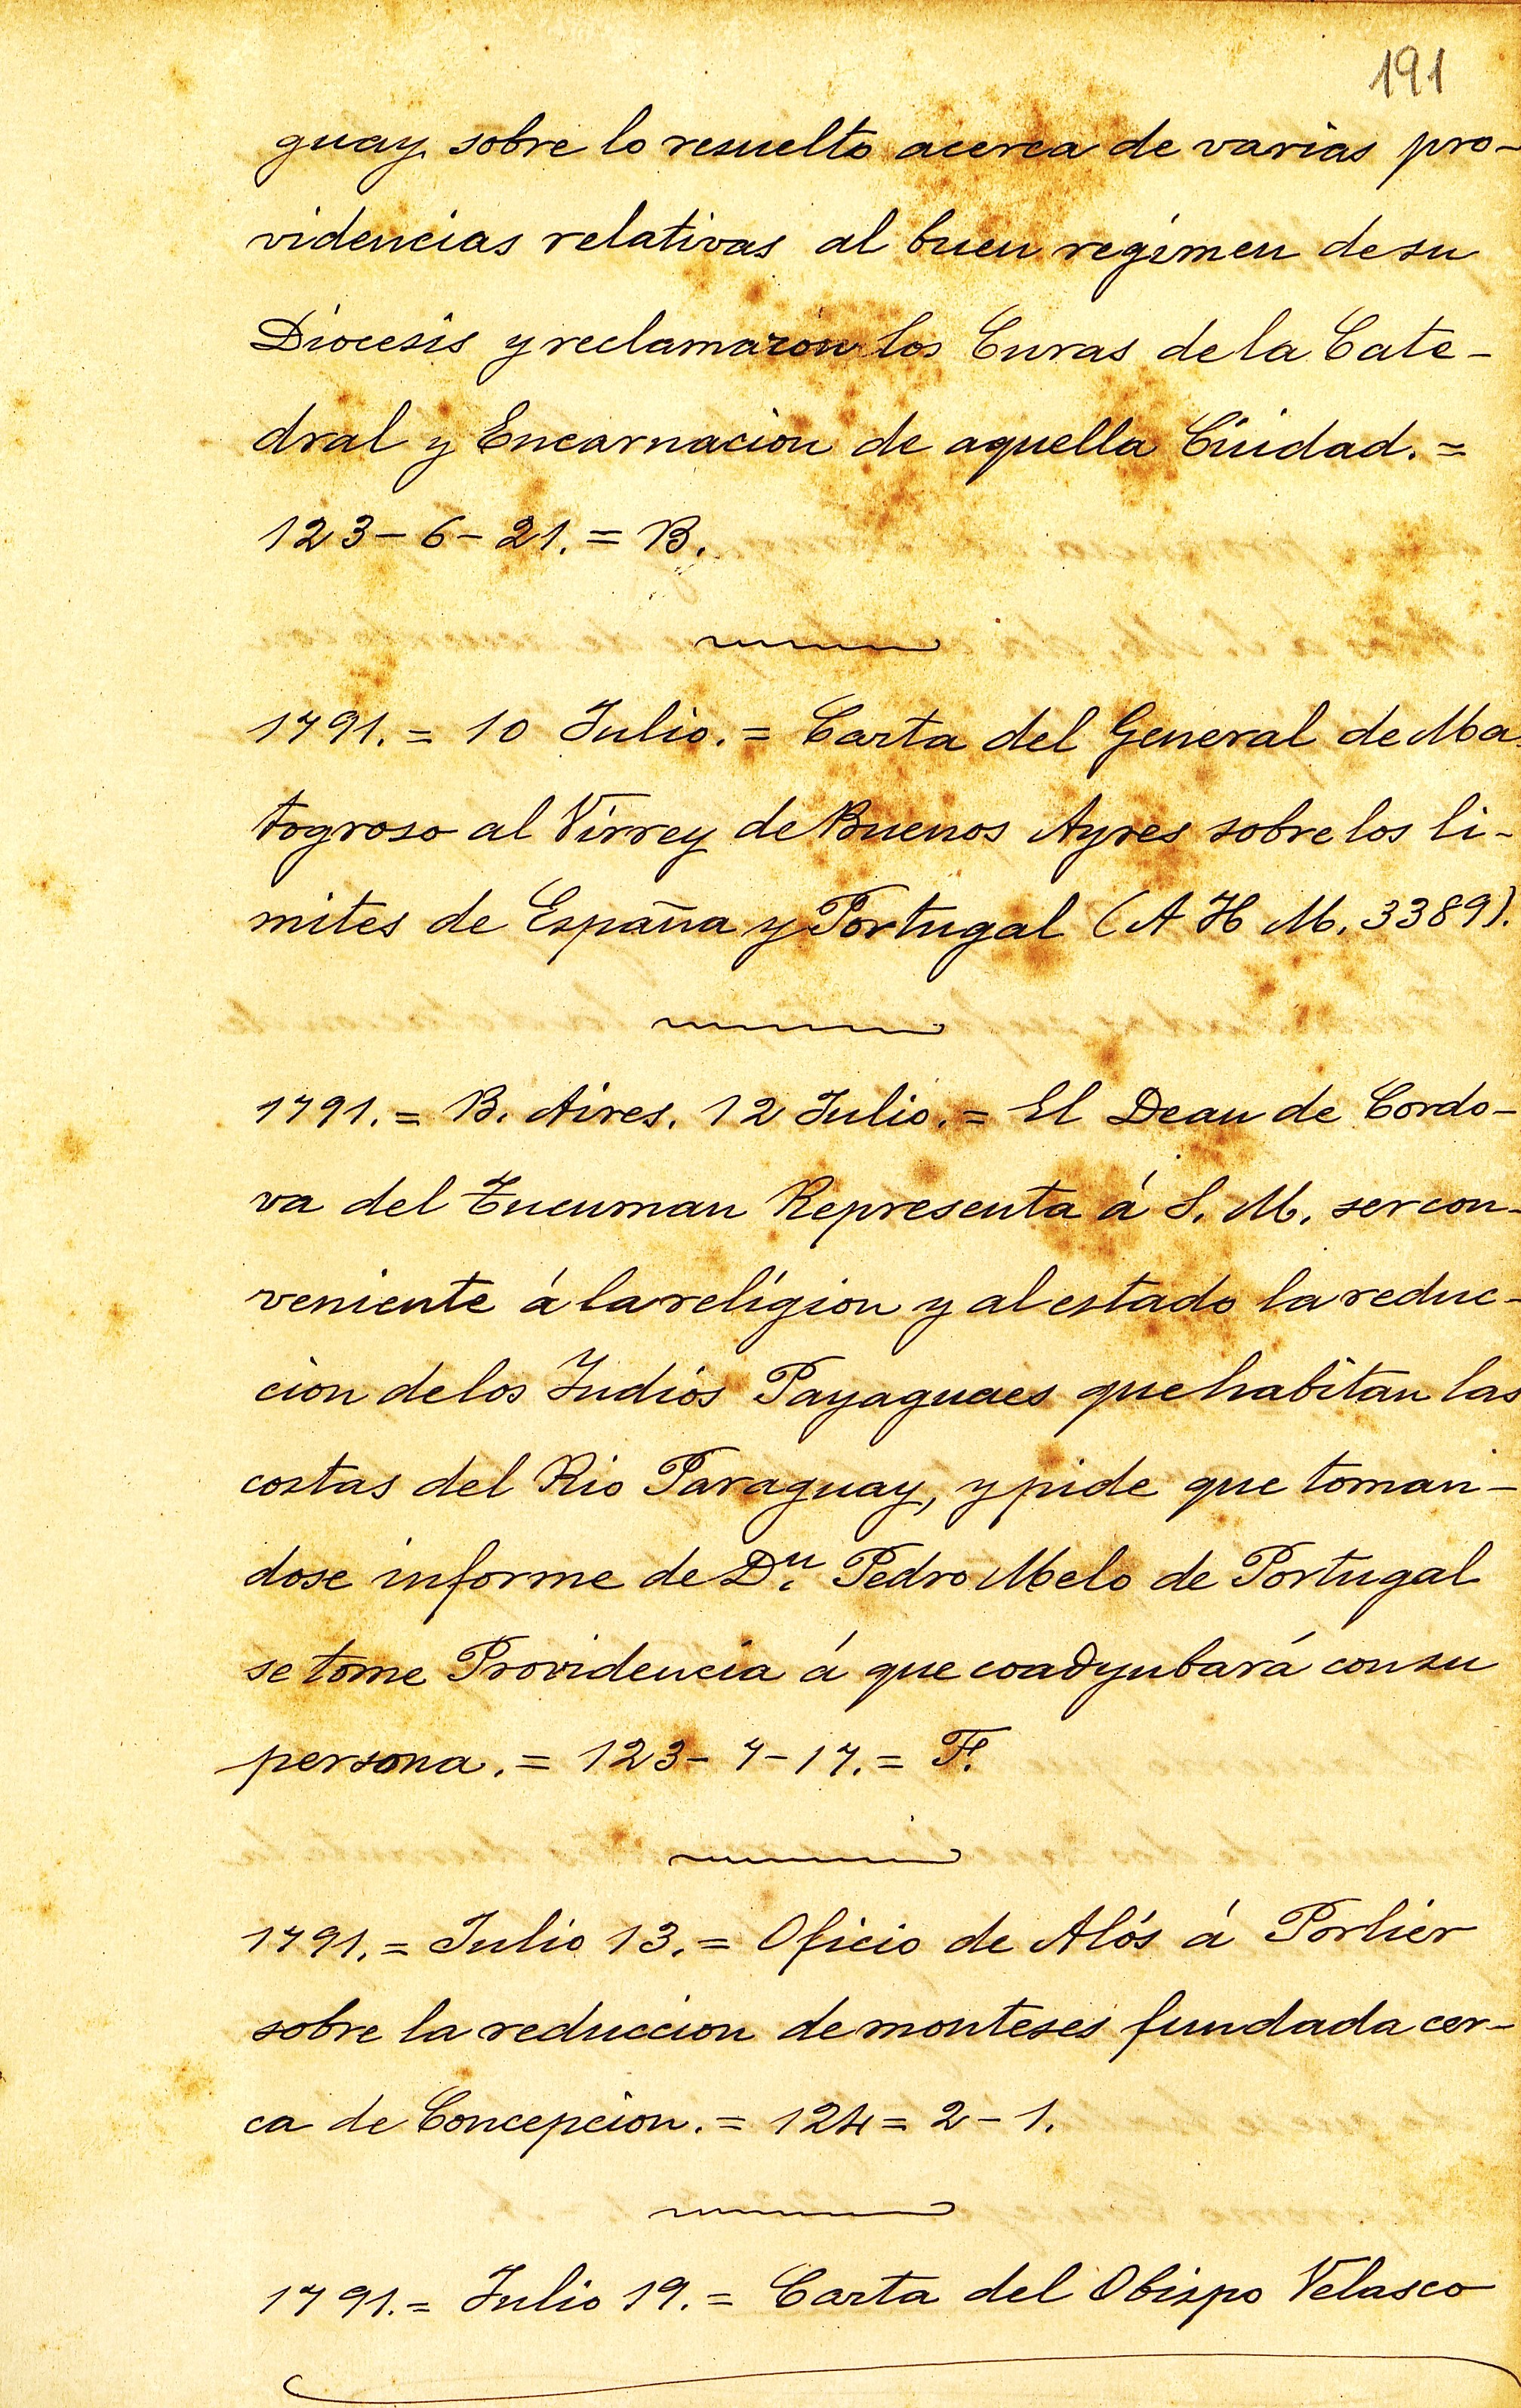 191
guay sobre lo resuelto acerca de varias pro-
videncias relativas al buen regimen de su
Diocesis y reclamaron los Curas de la Cate-
dral y Encarnacion de aquella Ciudad. =
123-6-21. = B.
1791. = 10 Julio. = Carta del General de Ma-
togroso al Virrey de Buenos Ayres sobre los li-
mites de España y Portugal (A H M. 3389).
1791. = B. Aires. 12 Julio. = El Dean de Cordo-
va del Tucuman Representa á S. M. ser con-
veniente á la religion y al estado la reduc-
cion de los Indios Payaguaes que habitan las
costas del Rio Paraguay, y pide que toman-
dose informe de Dn. Pedro Melo de Portugal
se tome Providencia á que coadyubará con su
persona. = 123-7-17. = F.
1791. = Julio 13. = Oficio de Alós á Porlier
sobre la reduccion de monteses fundada cer-
ca de Concepcion. = 124 = 2-1.
1791. = Julio 19. = Carta del Obispo Velasco